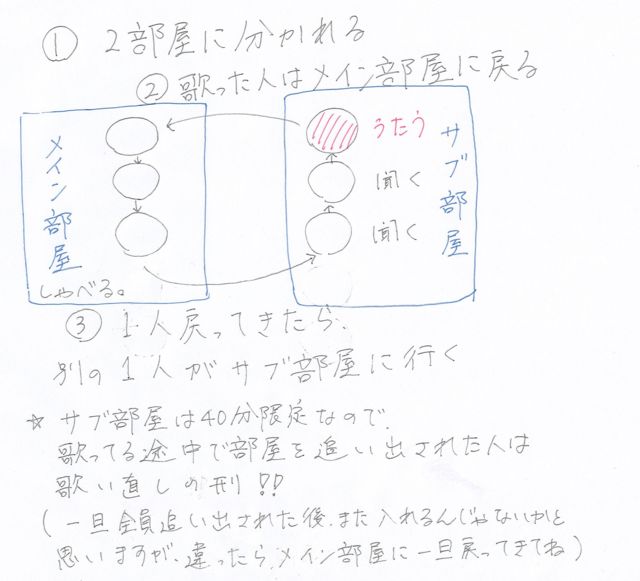 ① 2部屋に分かれる
② 歌った人はメイン部屋に戻る
メイン部屋
しゃべる。
うたう
聞く
聞く
サブ部屋
③ 1人戻ってきたら、
別の1人がサブ部屋に行く
☆ サブ部屋は40分限定なので、
歌ってる途中で部屋を追い出された人は
歌い直しの刑!!
(一旦全員追い出された後、また入れるんじゃないかと
思いますが、違ったら、メイン部屋に一旦戻ってきてね)